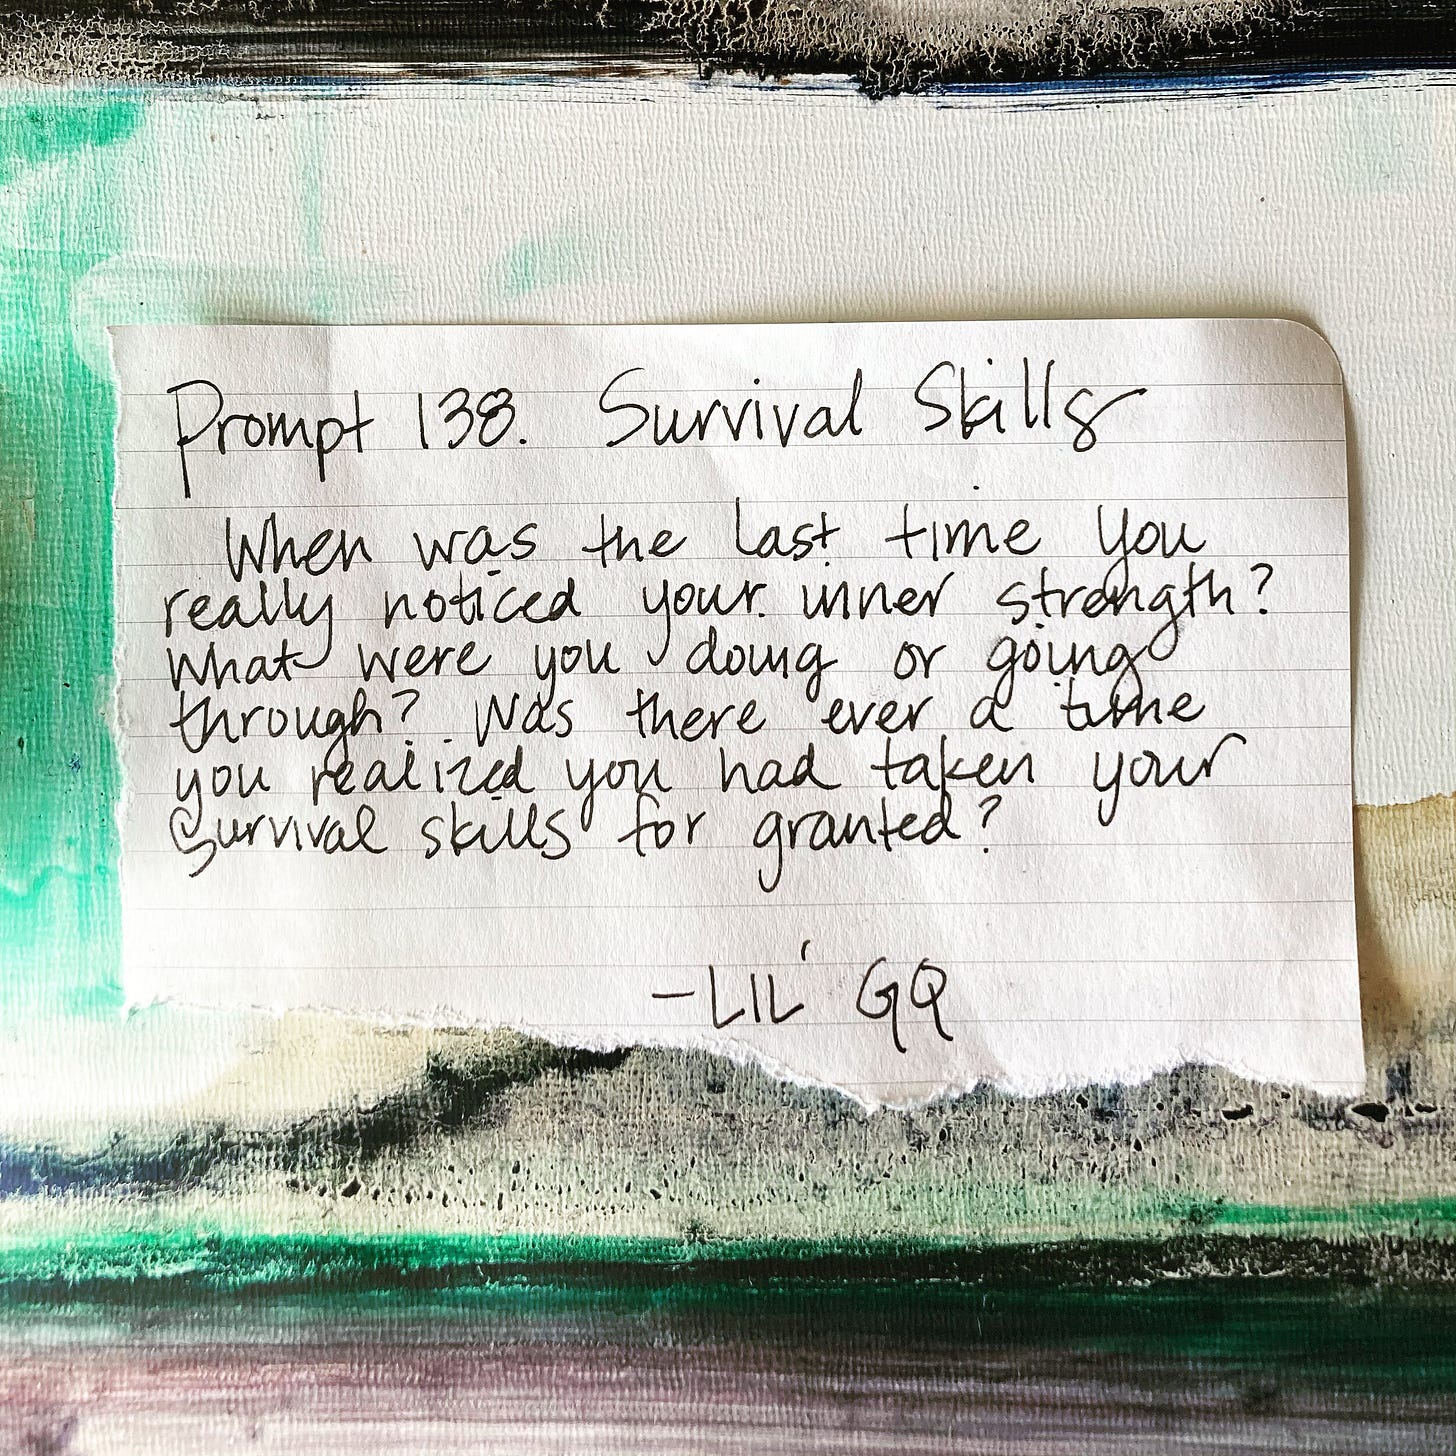 Prompt 138. Survival Skills
When was the last time you
really noticed your inner strength?
What were you doing or going
through? Was there ever a time
you realized you had taken your
Survival skills for granted?
-LIL' GQ